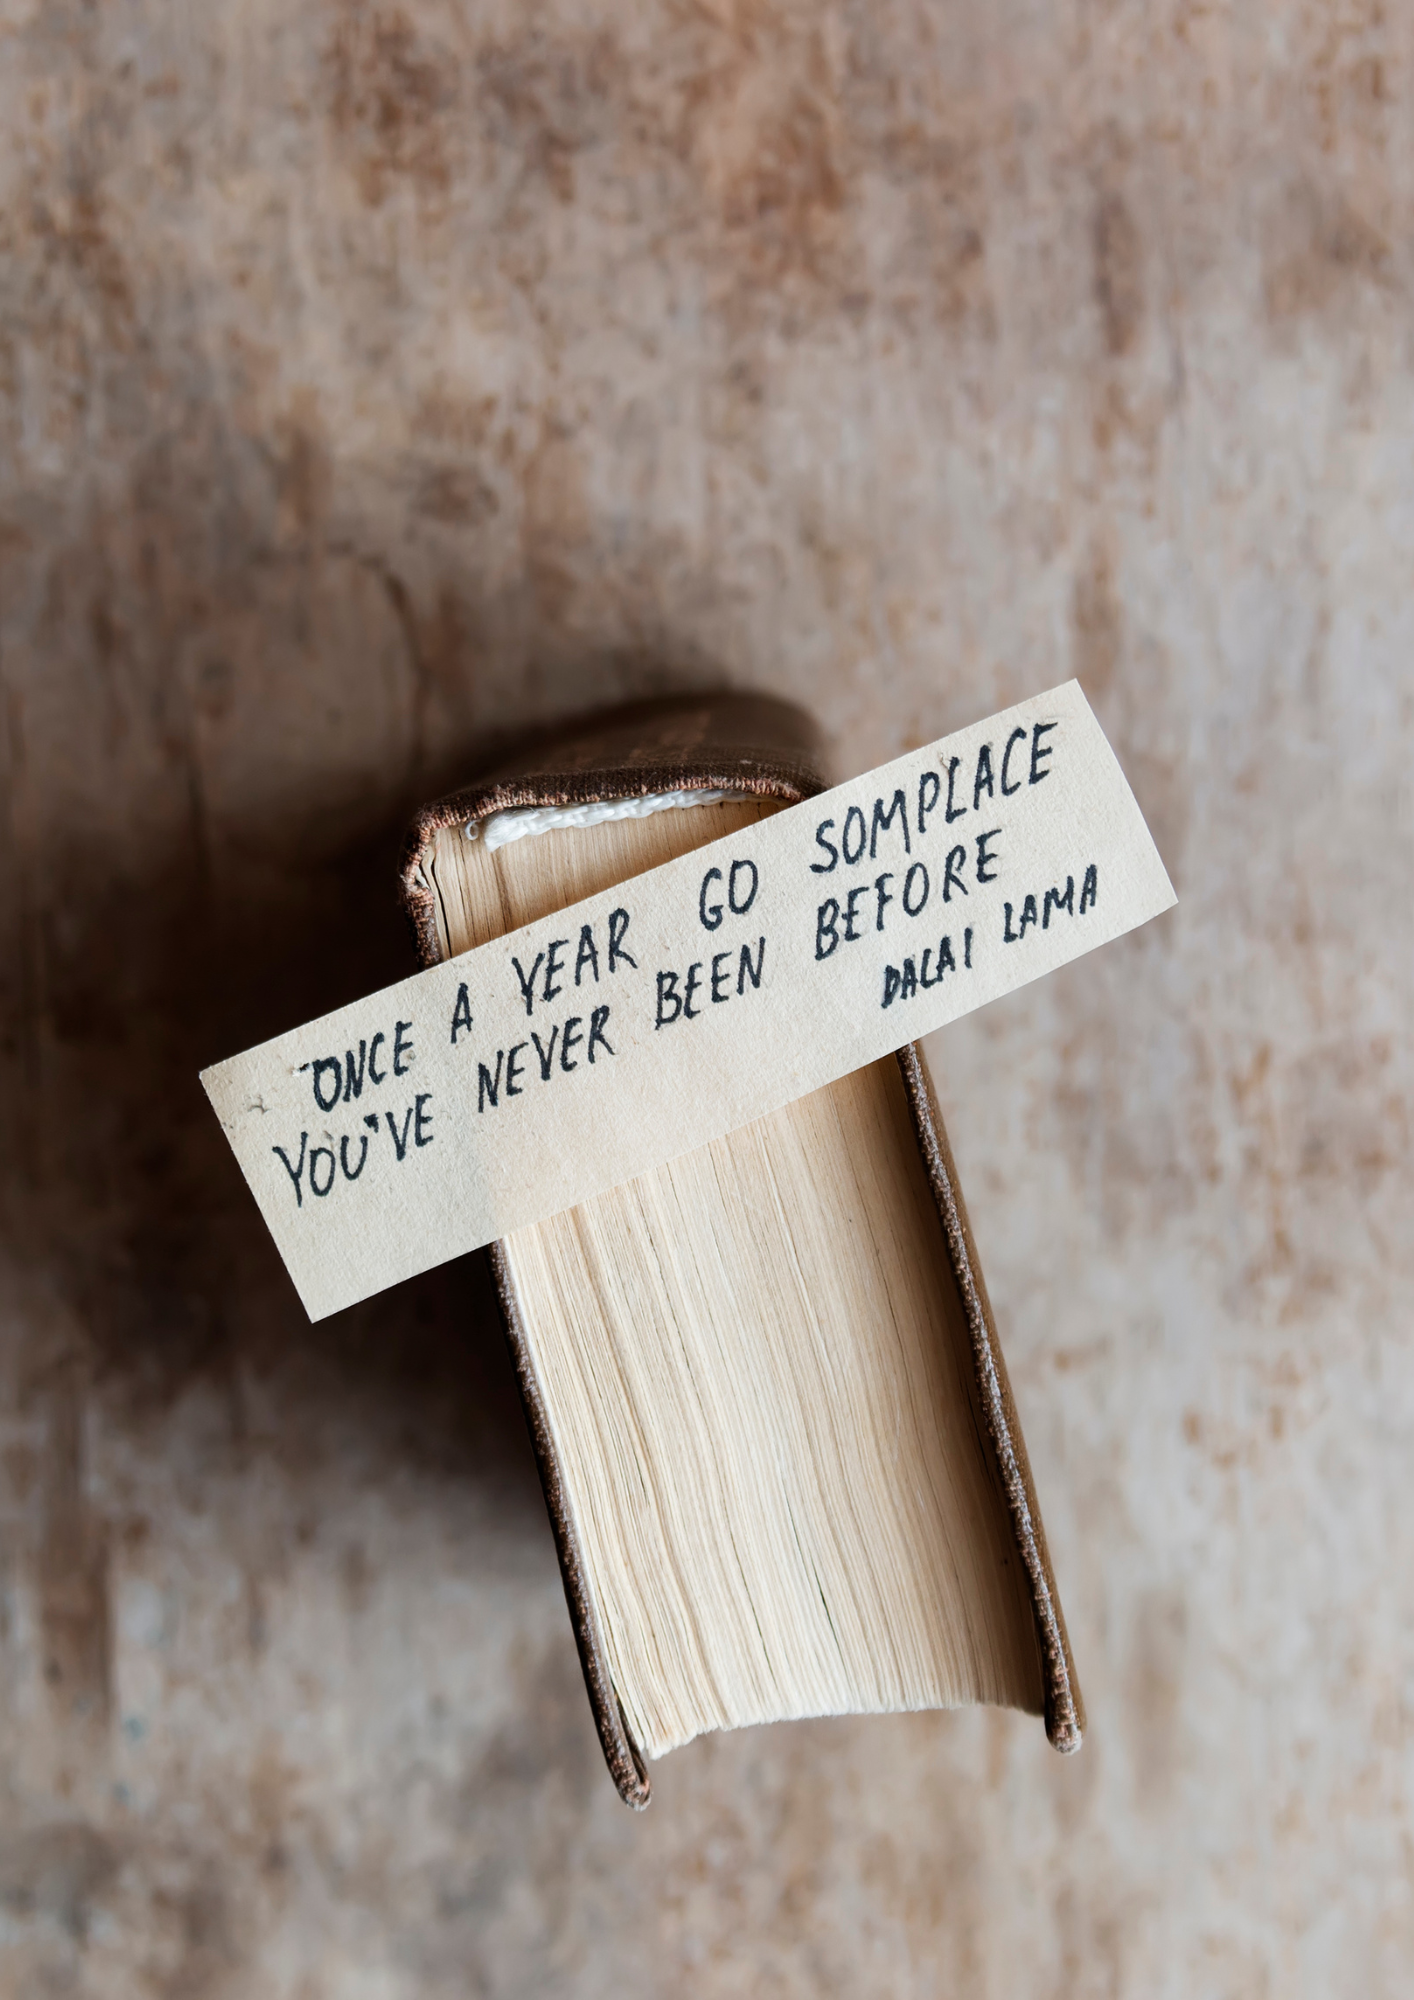 ONCE A YEAR GO SOMPLACE
YOU'VE NEVER BEEN BEFORE
DALAI LAMA